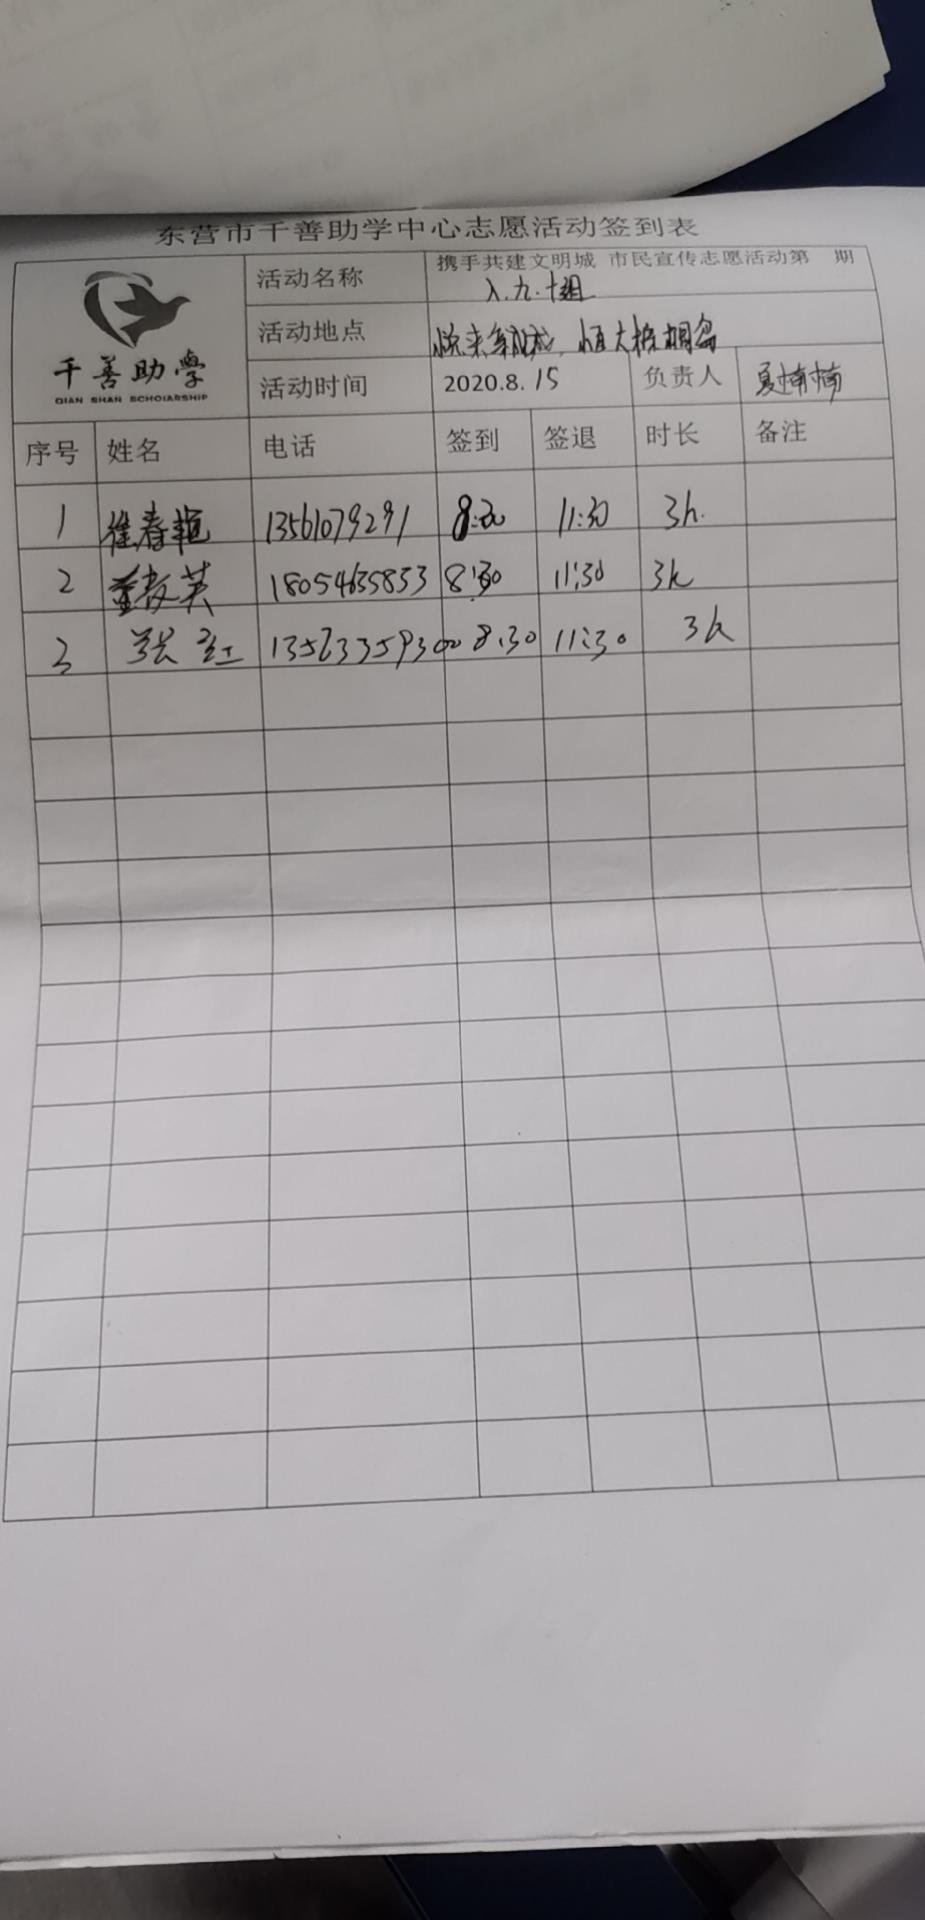 东营市千善助学中心志愿活动签到表
千善助学
QIAN SHAN SCHOIARSHIP
活动名称 携手共建文明城 市民宣传志愿活动第 期
八.九.十组
活动地点 恒大梧桐
活动时间 2020.8.15 负责人 夏楠楠
序号 姓名 电话 签到 签退 时长 备注
1 春艳 13561079291 11:30 3h.
2 18054635853 8:30 11:30 3h
3 张红 8:30 11:30 3h